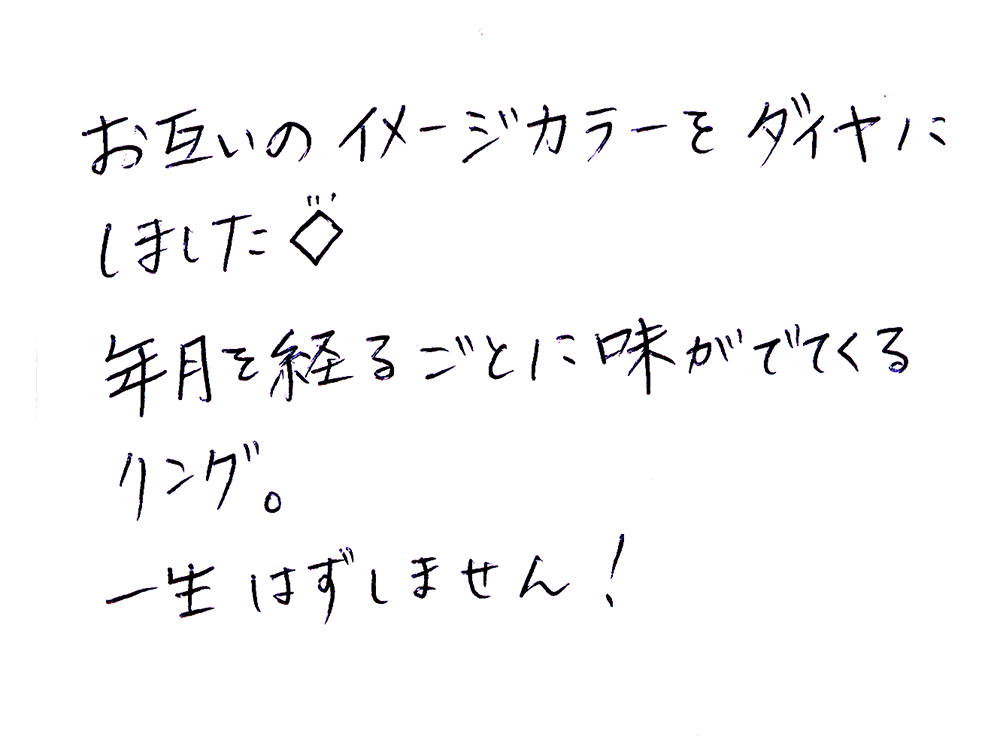 お互いのイメージカラーをダイヤに
しました◇
年月を経るごとに味がでてくる
リング。
一生はずしません!